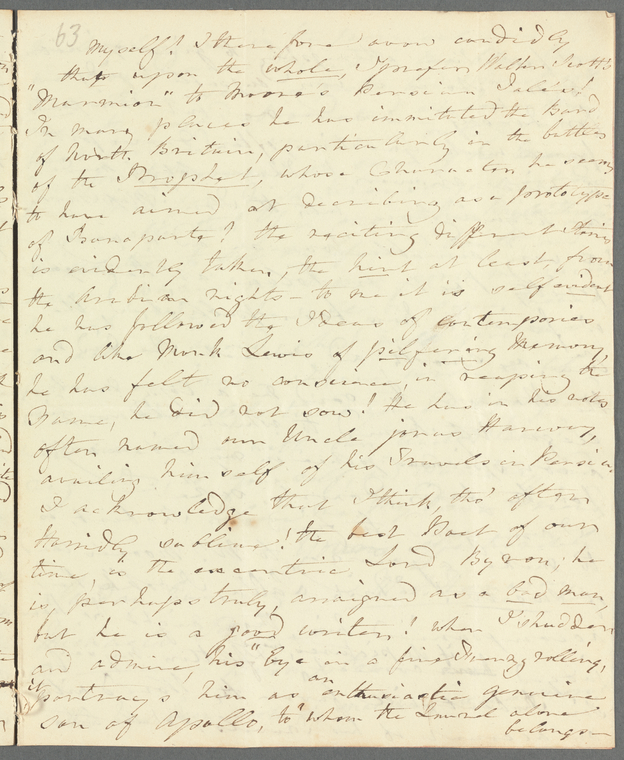 63
Myself! I therefore avow candidly
that upon the whole, I prefer Walter Scott's
"Marmion" to Moore's Persian Tales!
In many places he has immitated the Bard
of North Britain, particularly in the battles
of the Prophet, whose Character he seems
to have aimed at describing as a prototype
of Bonaparte! the reciting different Stories
is evidently taken, the hint at least, from
the Arabian nights – to me it is self evident
he has followed the Ideas of contempories
and like Monk Lewis of pilfering Memory,
he has felt no conscience, in reaping the
Fame, he did not sow! He has in his notes
often named our Uncle Jonas Hanway,
availing himself of his Travels in Persia.
I acknowledge that I think, tho' often
Horridly sublime! the best Poet of our
time, is the excentric Lord Byron; he
is, perhaps truly, arraigned as a bad man,
but he is a good writer! when I shudder
and admire, his "Eye in a fine Frenzy rolling,
it portrays him as an enthusiastic genuine
son of Apollo, to whom the Laurel alone
belongs–